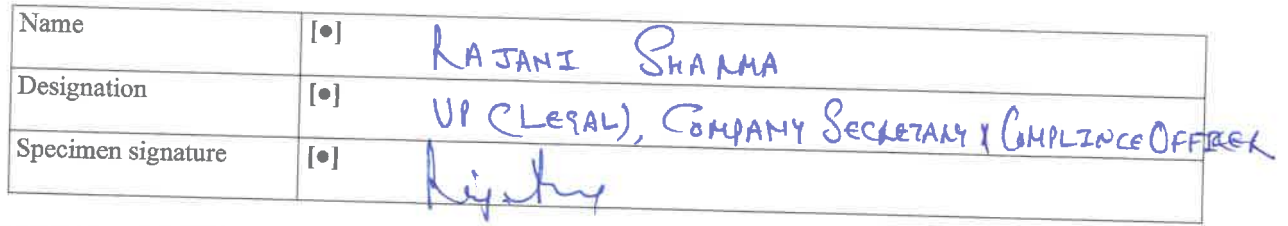 Name [●] RAJANI SHARMA
Designation [●] VP (LEGAL), COMPANY SECRETARY & COMPLINCE OFFICER
Specimen signature [●]